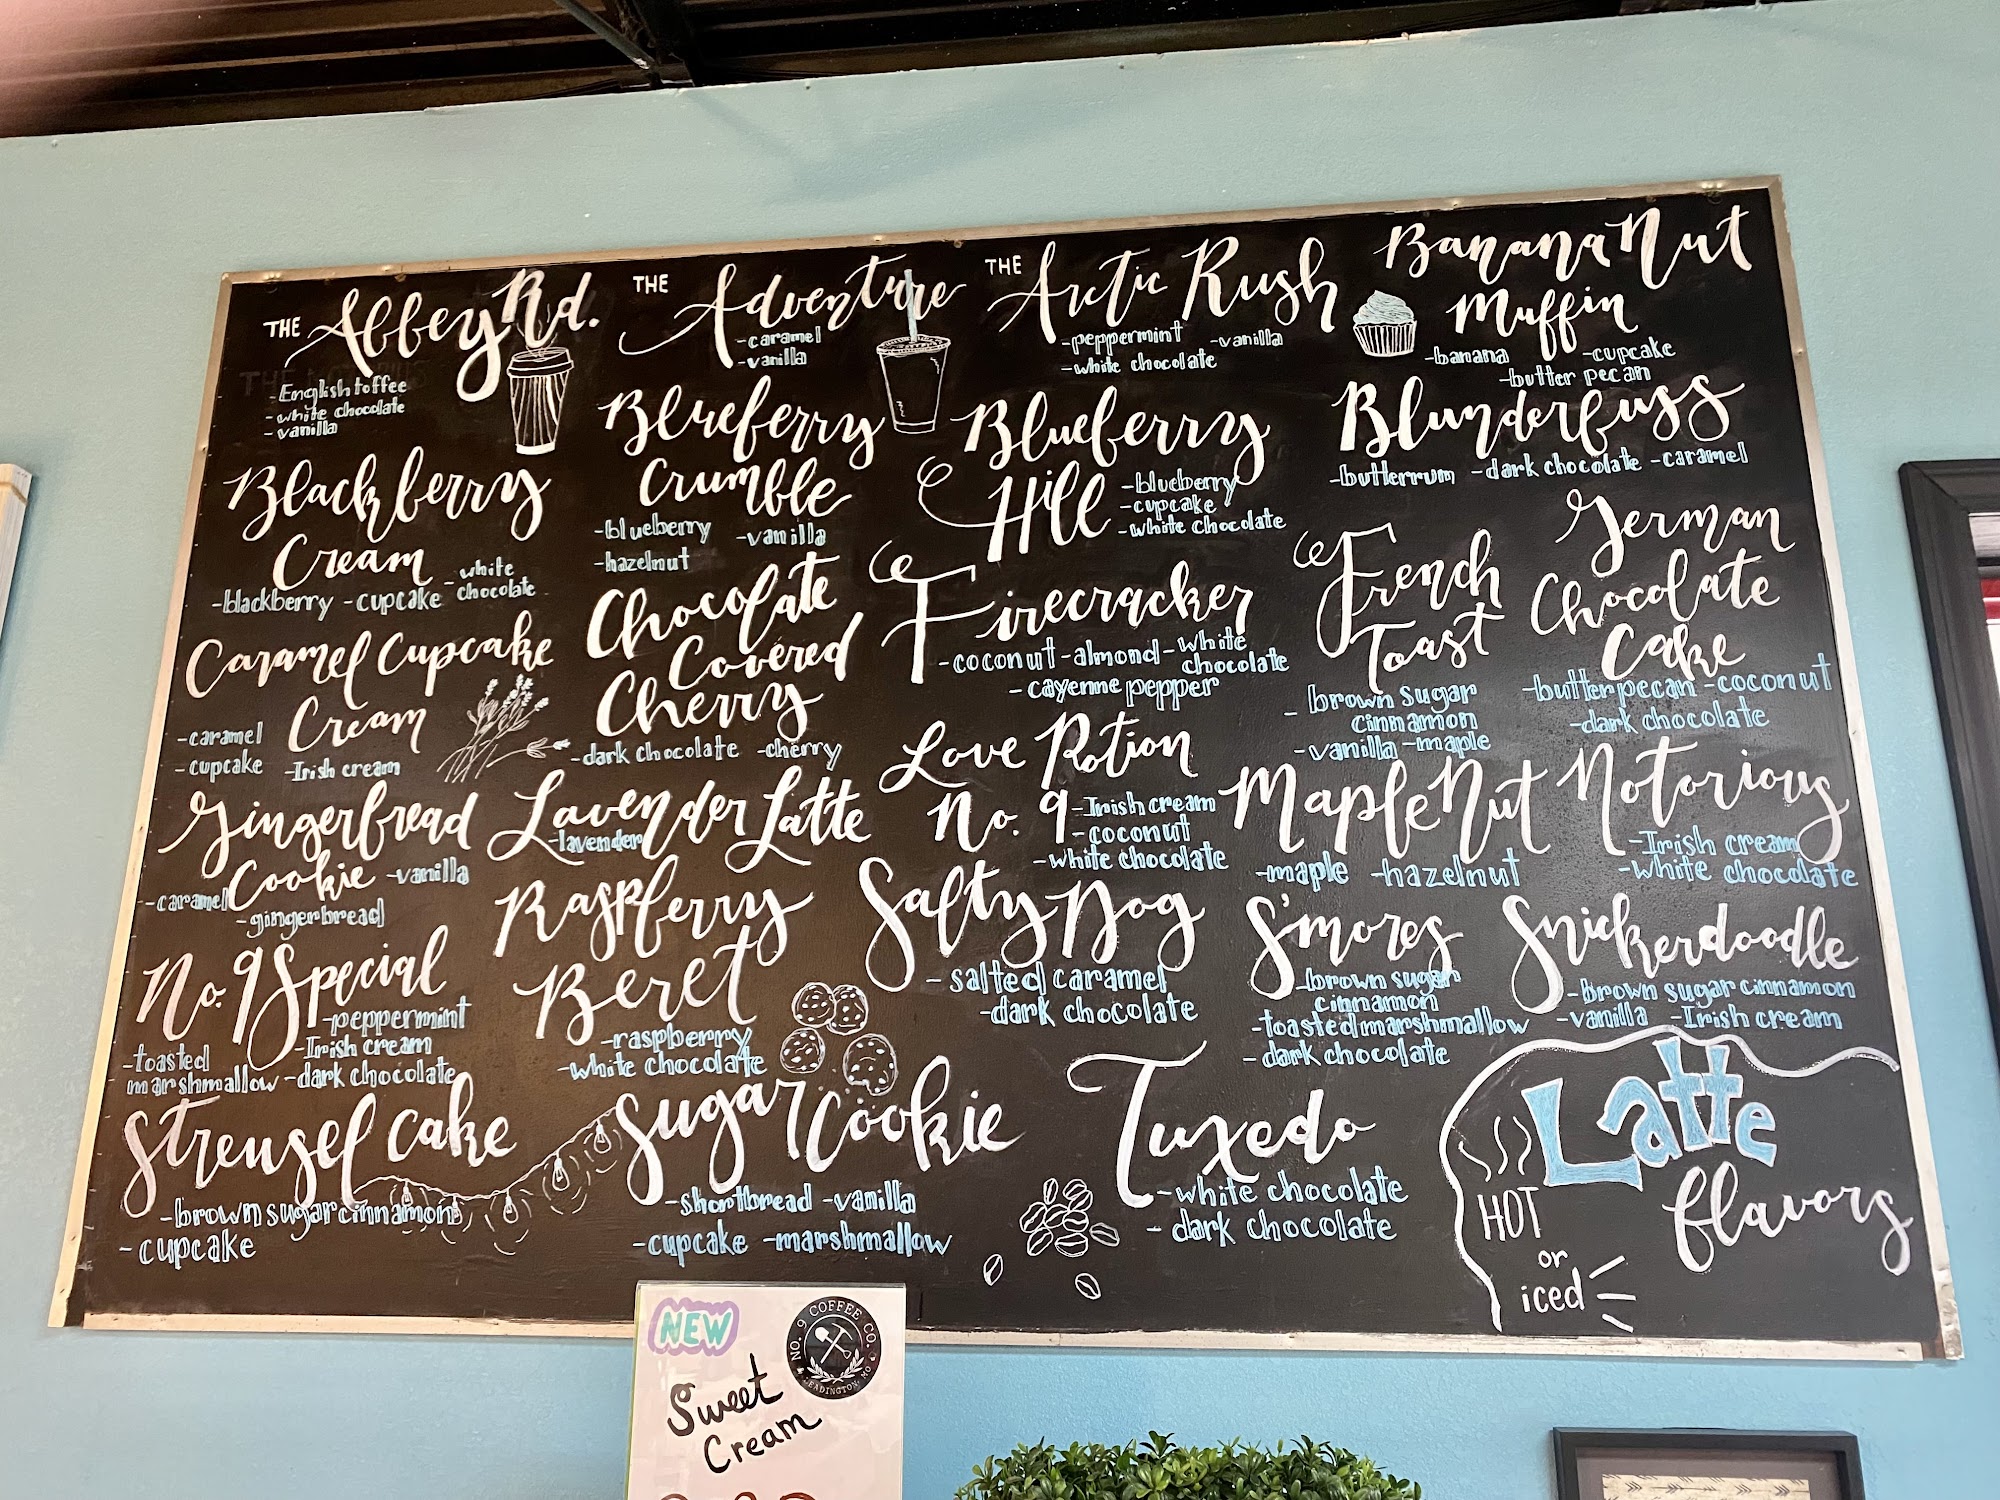 THE Abbey Rd.
-English toffee
-white chocolate
-vanilla
THE Adventure
-caramel
-vanilla
THE Arctic Rush
-peppermint -vanilla
-white chocolate
Banana Nut
Muffin
-banana -cupcake
-butter pecan
Blackberry
Cream
-blackberry -cupcake -white
chocolate
Blueberry
Crumble
-blueberry -vanilla
-hazelnut
Blueberry
Hill
-blueberry
-cupcake
-white chocolate
Blunderbuss
-butterrum -dark chocolate -caramel
Caramel Cupcake
Cream
-caramel
-cupcake -Irish cream
Chocolate
Covered
Cherry
-dark chocolate -cherry
Firecracker
-coconut -almond -white
chocolate
-cayenne pepper
French
Toast
- brown sugar
cinnamon
-vanilla -maple
German
Chocolate
Cake
-butter pecan -coconut
-dark chocolate
Gingerbread
Cookie -vanilla
-caramel
-gingerbread
Lavender Latte
-lavender
Love Potion
No. 9 -Irish cream
-coconut
-white chocolate
Maple Nut
-maple -hazelnut
Notorious
-Irish cream
-white chocolate
No. 9 Special
-peppermint
-toasted -Irish cream
marshmallow -dark chocolate
Raspberry
Beret
-raspberry
-white chocolate
Salty Dog
- salted caramel
-dark chocolate
S'mores
-brown sugar
cinnamon
-toasted marshmallow
- dark chocolate
Snickerdoodle
-brown sugar cinnamon
-vanilla -Irish cream
Streusel Cake
-brown sugar cinnamon
- cupcake
Sugar Cookie
-shortbread -vanilla
-cupcake -marshmallow
Tuxedo
-white chocolate
- dark chocolate
Latte
flavors
HOT
or
iced
NEW
NO. 9 COFFEE CO.
LEADINGTON, MO
Sweet
Cream